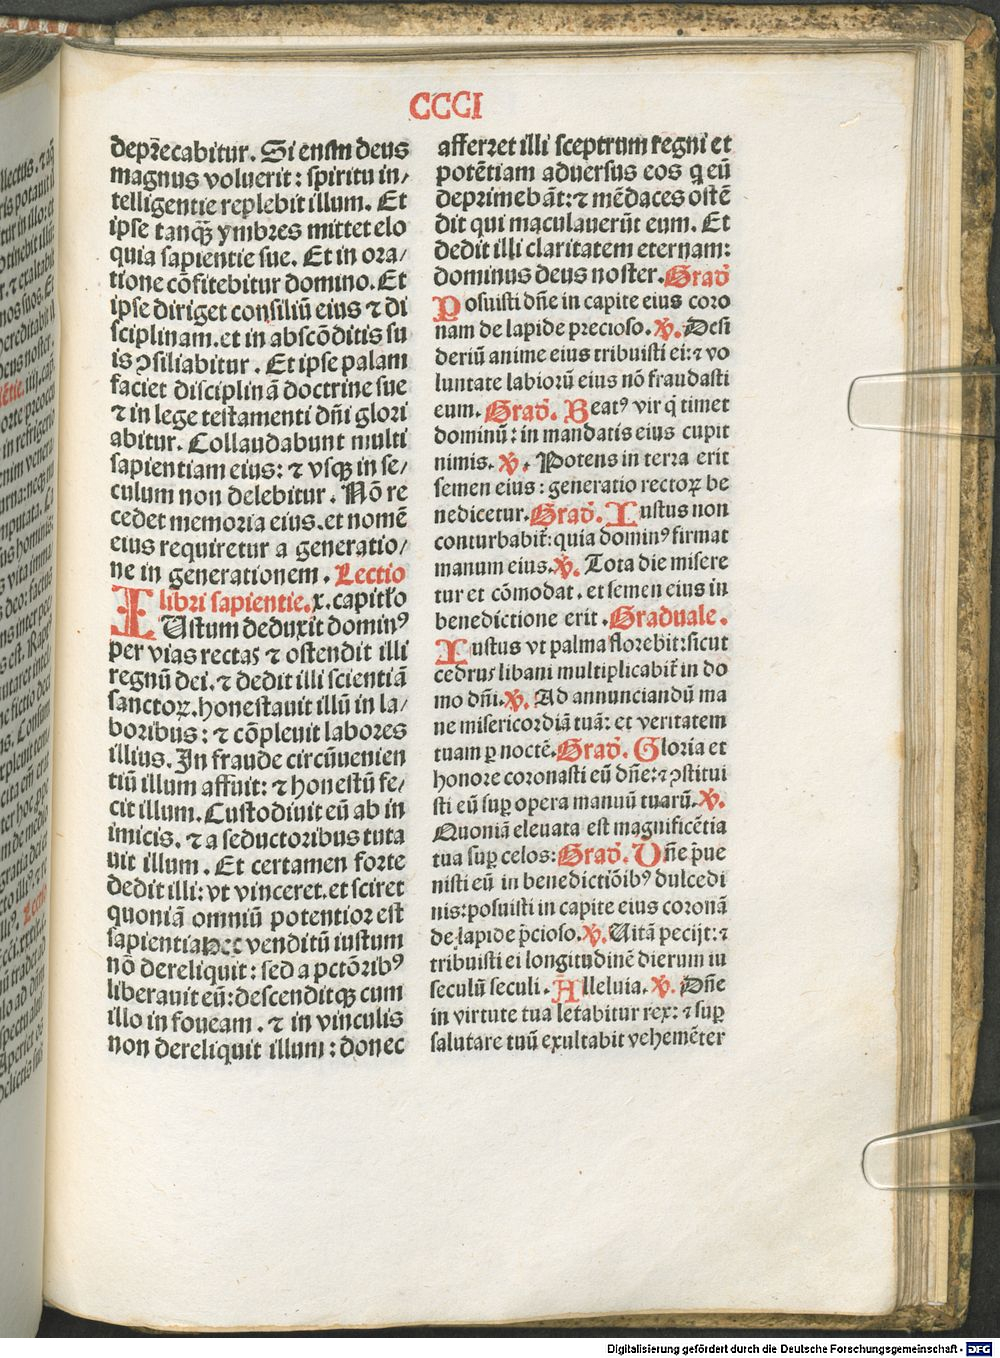 CCCI
depꝛecabitur. Si enim deus
magnus voluerit : spiritu in/
telligentie replebit illum. Et
ipse tanqꝫ ymbres mittet elo
quia sapientie sue. Et in ora/
tione cōfitebitur domino. Et
ipse diriget consiliū eius ⁊ di
sciplinam. et in abscōditis su
is ꝯsiliabitur . Et ipse palam
faciet disciplinā doctrine sue
⁊ in lege testamenti dn̄i glori
abitur. Collaudabunt multi
sapientiam eius: ⁊ vsqꝫ in se/
culum non delebitur . Nō re
cedet memoria eius. et nomē
eius requiretur a generatio/
ne in generationem . Lectio
libri sapientie. x. capitl̄o
IUstum deduxit dominꝰ
per vias rectas ⁊ ostendit illi
regnū dei. ⁊ dedit illi scientiā
sanctoꝝ. honestauit illū in la/
boribus : ⁊ cōpleuit labores
illius. In fraude circūuenien
tiū illum affuit: ⁊ honestū fe/
cit illum. Custodiuit eū ab in
imicis. ⁊ a seductoribus tuta
uit illum . Et certamen forte
dedit illi: vt vinceret. et sciret
quoniā omniū potentior est
sapientia Hec venditū iustum
nō dereliquit : sed a pctōribꝰ
liberauit eū: descenditqꝫ cum
illo in foueam . ⁊ in vinculis
non dereliquit illum : donec
afferret illi sceptrum regni et
potētiam aduersus eos q̄ eū
deprimebāt: ⁊ mēdaces ostē
dit qui maculauerūt eum. Et
dedit illi claritatem eternam:
dominus deus noster . Grad̄
Posuisti dn̄e in capite eius coro
nam de lapide precioso . ℣. Desi
deriū anime eius tribuisti ei: ⁊ vo
luntate labiorū eius nō fraudasti
eum. Grad̄. Beatꝰ vir q̇ timet
dominū : in mandatis eius cupit
nimis. ℣ . Potens in terra erit
semen eius : generatio rectoꝝ be
nedicetur. Grad̄. Iustus non
conturbabit̄: quia dominꝰ firmat
manum eius. ℣. Tota die misere
tur et cōmodat . et semen eius in
benedictione erit . Graduale .
Iustus vt palma florebit: sicut
cedrus libani multiplicabit̄ in do
mo dn̄i. ℣. Ad annunciandū ma
ne misericordiā tuā: et veritatem
tuam ꝑ noctē. Grad̄. Gloria et
honore coronasti eū dn̄e: ⁊ ꝯstitui
sti eū suꝑ opera manuū tuarū. ℣.
Quoniā eleuata est magnificētia
tua suꝑ celos: Grad̄. Dn̄e p̄ue
nisti eū in benedictiōibꝰ dulcedi
nis: posuisti in capite eius coronā
de lapide p̄cioso. ℣. Uitā pecijt: ⁊
tribuisti ei longitudinē dierum in
seculū seculi . Alleluia. ℣. Dn̄e
in virtute tua letabitur rex: ⁊ suꝑ
salutare tuū exultabit vehemēter
Digitalisierung gefördert durch die Deutsche Forschungsgemeinschaft - DFG